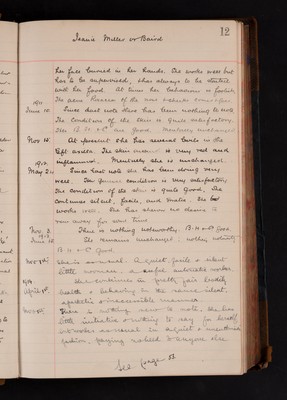 12
Jeanie Miller or Baird
her face buried in her hands. She works well but
has to be supervised, & has always to be started
with her food. At times her behaviour is foolish.
1911
June 10. Since last note there has been nothing to note
The condition of the skin is quite satisfactory.
Her B. H. & P are good. Mentally unchanged
Nov 15. At present she has several boils in the
left axilla. The skin is very red and
inflammed. Mentally she is unchanged.
1912.
May 2. Since last note she has been doing very
well. Her general condition is very satisfactory
The condition of the skin is quite good. She
continues silent, facile, and erratic. She
works well. She has shown no desire to
run away for some time.
Nov. 2. There is nothing noteworthy. B. H & P good.
1913
June 10. She remains unchanged. nothing noteworthy
B. H. & P. Good
Nov 7th She is as usual. A quiet, facile & silent
little woman, a useful automatic worker.
1914.
April 1st. She continues in pretty fair bodily
health & behaving in the same silent,
apathetic & inaccessible manner.
Nov There is nothing new to note. She has
little initiative & nothing to say for herself
but works as usual in a quiet &
fashion paying no heed to anyone else
See page 51